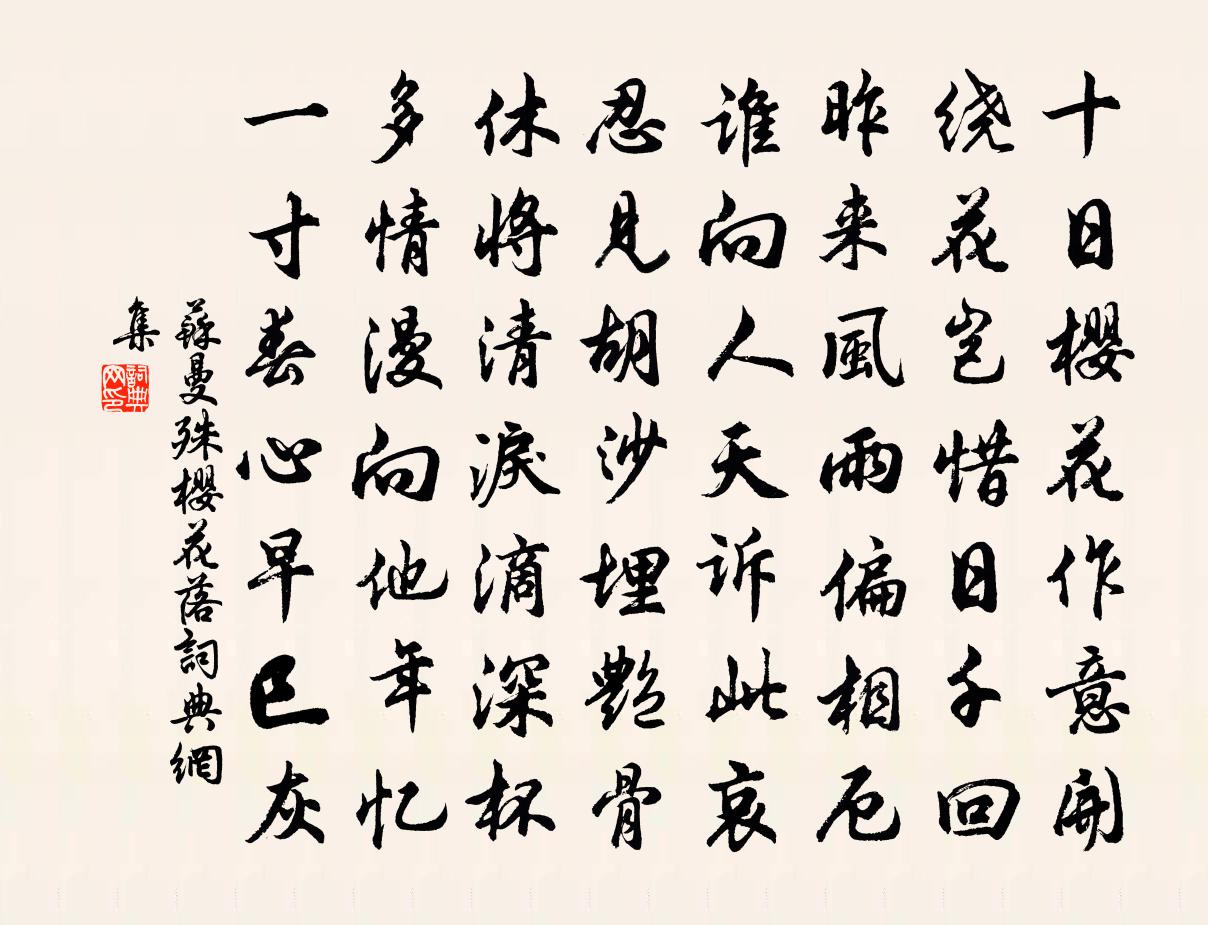 十日櫻花作意開
绕花岂惜日千回
昨来風雨偏相厄
谁向人天诉此哀
忍見胡沙埋艷骨
休將清淚滴深杯
多情漫向他年忆
一寸春心早已灰
蘇曼殊櫻花落詞典網
集
詞典
网印